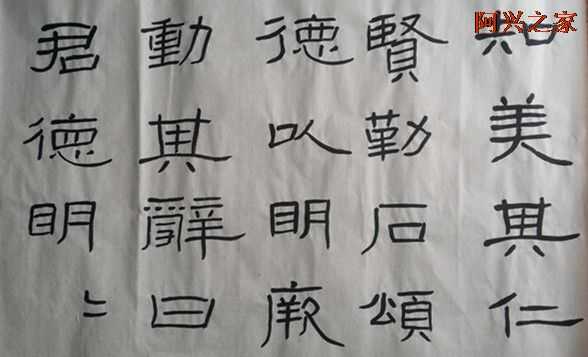 阿兴之家
知美其仁
賢勒石頌
德以眀厥
動其辭曰
君德眀〻